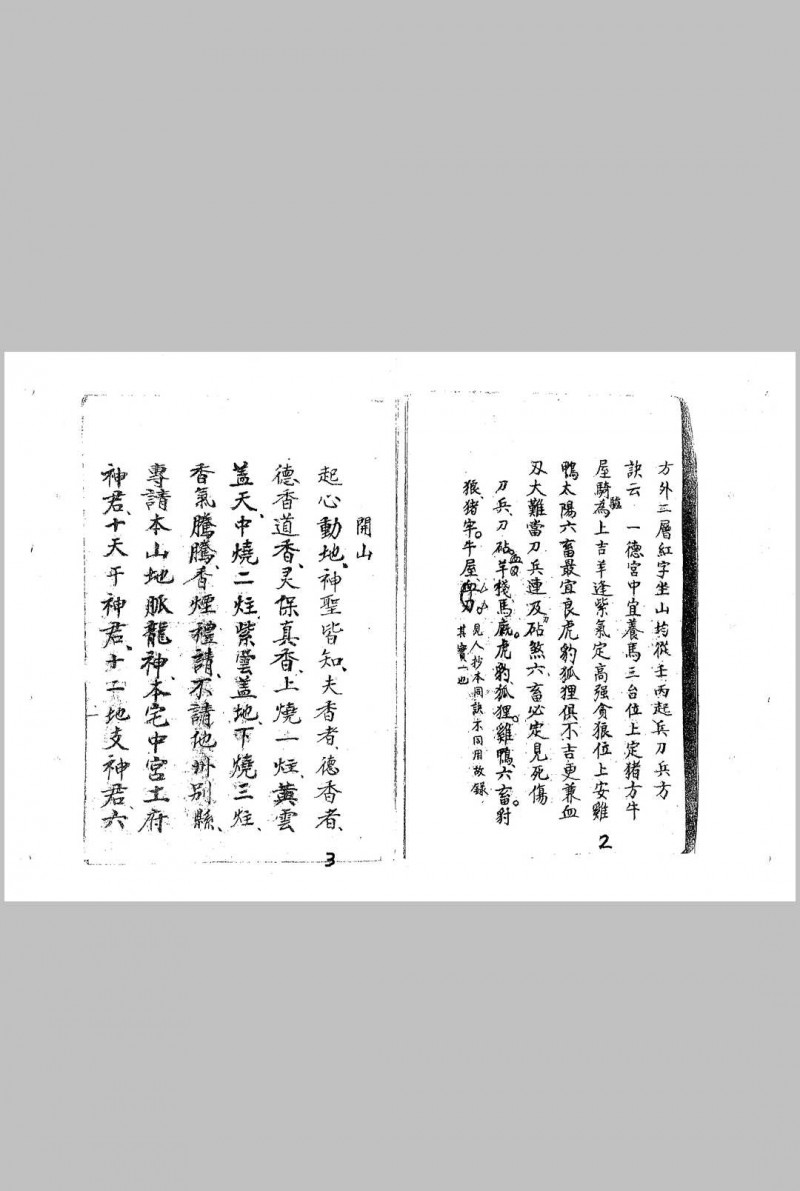 方外二層紅字坐山均從壬丙起兵刀兵方
訣云 一德宮中宜養馬三台位上定猪方牛
屋騎為上吉羊逢紫氣定高强貪狼位上安雞
鴨太陽六畜最宜良虎豹狐狸俱不吉更兼血
刄大難當刀兵連及砧煞六畜必定見死傷
刀兵、刀砧。羊棧、馬廄。虎豹、狐狸。雞鴨、六畜。豺
狼、猪牢。牛屋、血刀
見人抄本同訣不同用故録
其實一也
2
開山
起心動地、神聖皆知、夫香者、德香者、
德香道香、灵保真香、上燒一炷、黃雲
盖天、中燒二炷、紫雲盖地、下燒三炷、
香氣騰騰、香煙禮請、不請他州别縣、
專請本山地脈龍神、本宅中宮土府
神君、十天干神君、十二地支神君、六
3